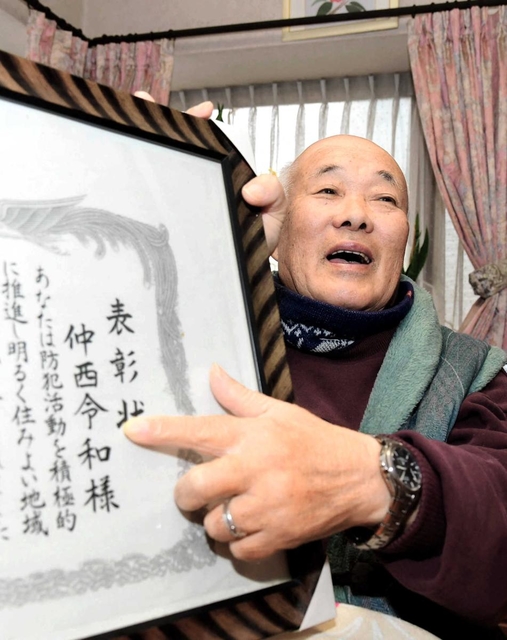 表彰状
仲西令和様
あなたは防犯活動を積極的
に推進し明るく住みよい地域